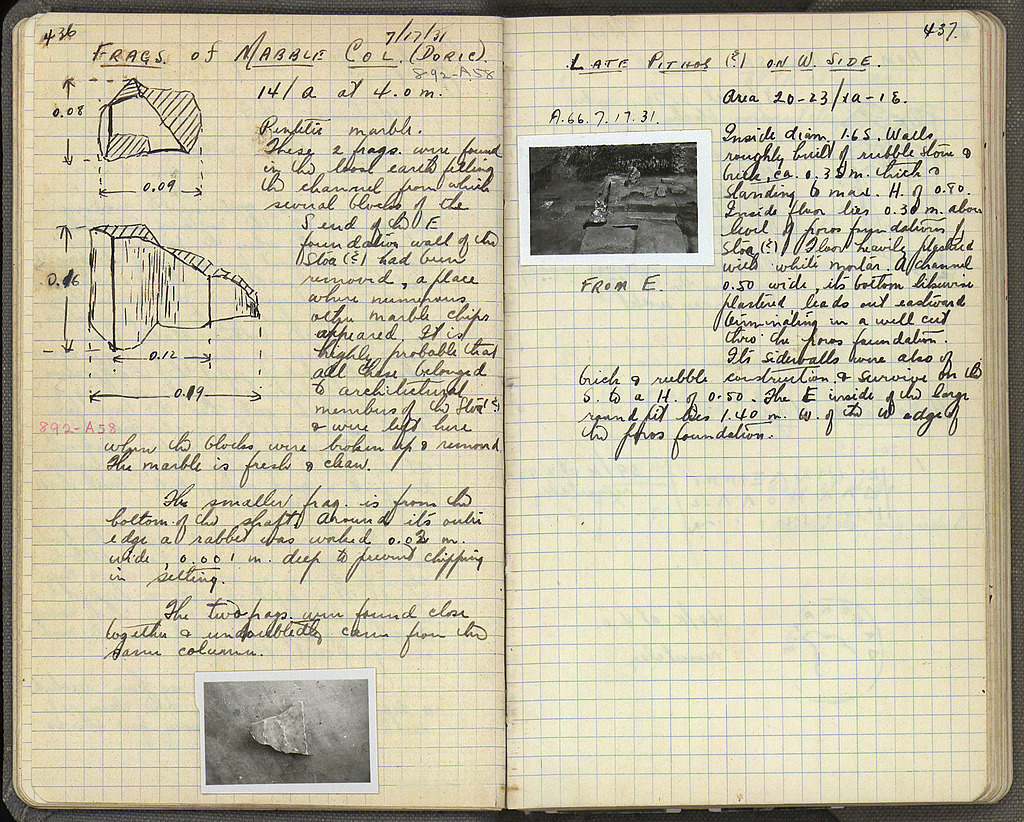 436
7/17/31
FRAGS. of MARBLE COL. (DORIC).
892-A58
0.08
0.09
14/A at 4.0 m.
Pentelic marble.
These 2 frags. were found
in the loose earth filling
the channel from which
several blocks of the
S end of the E
foundation wall of the
Stoa (?) had been
removed, a place
where numerous
other marble chips
appeared. It is
highly probable that
all these belonged
to architectural
members of the Stoa (?)
& were left here
when the blocks were broken up & removed.
The marble is fresh & clean.
0.16
0.12
0.19
892-A58
The smaller frag. is from the
bottom of the shaft. Around its outer
edge a rabbet was worked 0.02 m.
wide, 0.001 m. deep to prevent chipping
in setting.
The two frags. were found close
together & undoubtedly came from the
same column.
437.
LATE PITHOS (?) ON W. SIDE.
Area 20-23/ια-ιε.
A.66.7.17.31.
FROM E.
Inside diam. 1.65. Walls
roughly built of rubble stone &
brick, ca. 0.35 m. thick &
standing to max. H. of 0.90.
Inside floor lies 0.30 m. above
level of poros foundations of
Stoa (?). Floor heavily plastered
with white mortar. A channel
0.50 wide, its bottom likewise
plastered leads out eastward
terminating in a well cut
thro the poros foundation.
Its sidewalls were also of
brick & rubble construction & survive on the
S. to a H. of 0.50. The E inside of the large
round pit lies 1.40 m. W. of the W edge of
the poros foundation.